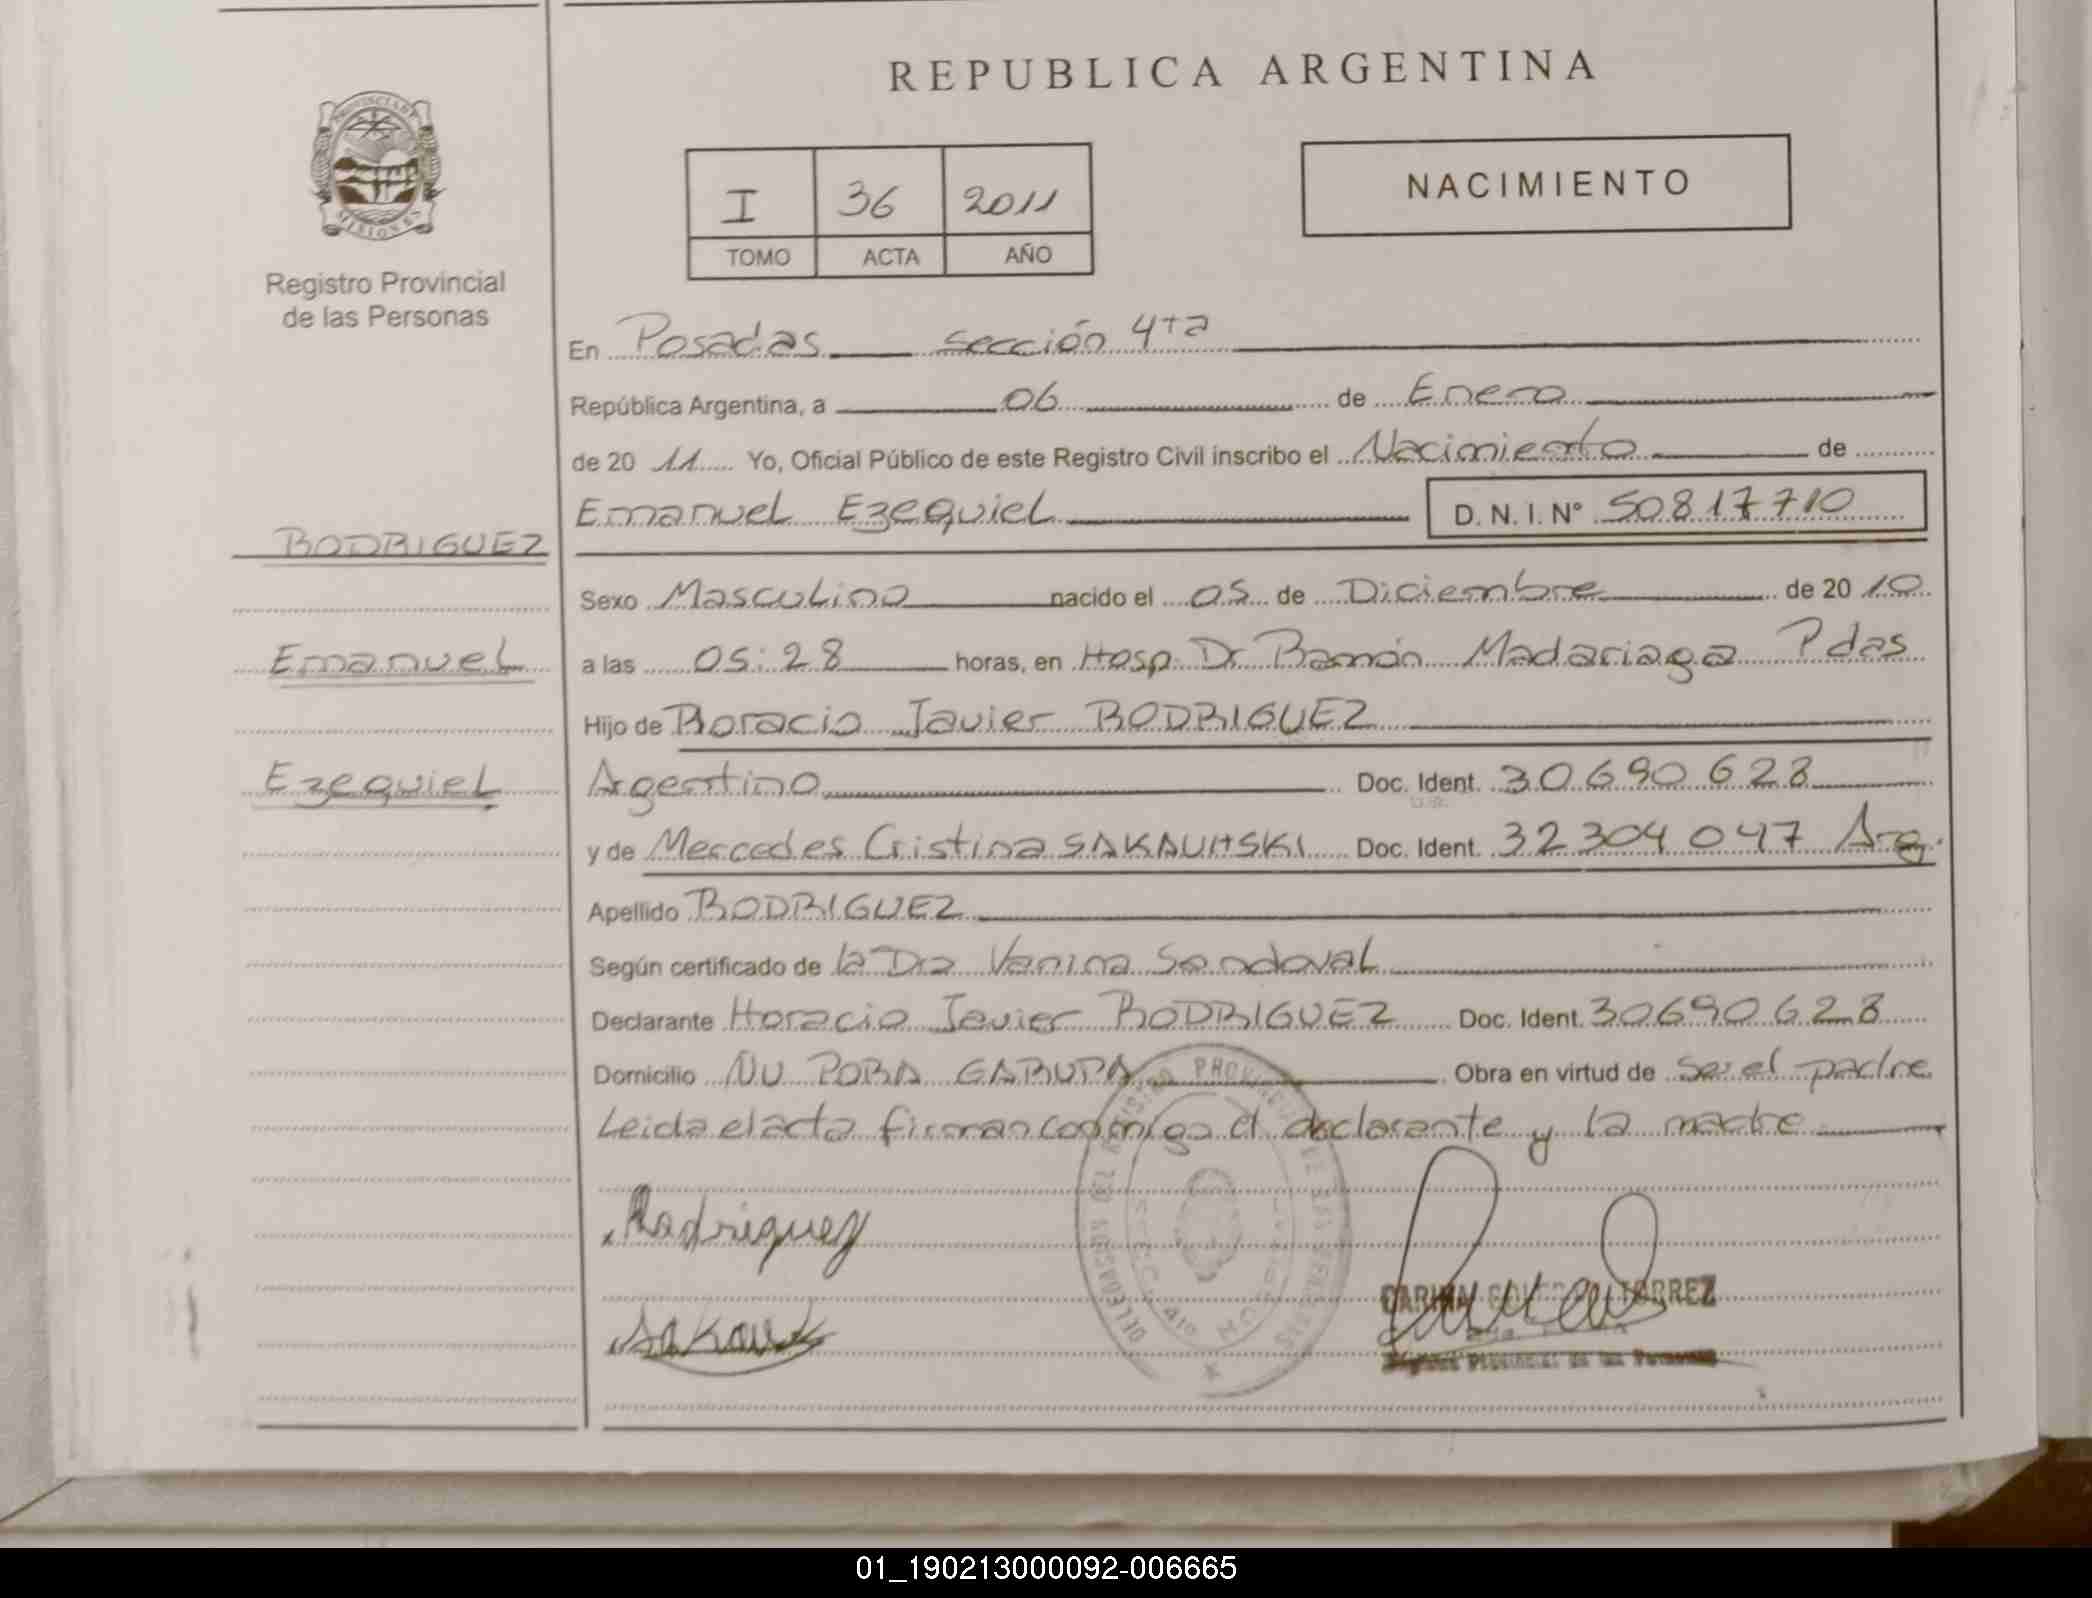 REPUBLICA ARGENTINA
PROVINCIA DE
MISIONES
Registro Provincial
de las Personas
I 36 2011
TOMO ACTA AÑO
NACIMIENTO
En Posadas sección 4ta
República Argentina, a 06 de Enero
de 20 11 Yo, Oficial Público de este Registro Civil inscribo el Nacimiento de
Emanuel Ezequiel D. N. I. N° 50817710
RODRIGUEZ
Emanuel
Ezequiel
Sexo Masculino nacido el 05 de Diciembre de 20 10
a las 05:28 horas, en Hosp. Dr Ramón Madariaga Pdas
Hijo de Horacio Javier RODRIGUEZ
Argentino Doc. Ident. 30690628
y de Mercedes Cristina Doc. Ident. 32304047 Arg.
Apellido RODRIGUEZ
Según certificado de la Dra Vanina Sandoval
Declarante Horacio Javier RODRIGUEZ Doc. Ident. 30690628
Domicilio ÑU PORA GARUPA Obra en virtud de ser el padre
Leida el acta firman conmigo el declarante y la madre
Rodriguez
REGISTRO PROVINCIAL DE LAS PERSONAS
DELEGACION
Registro Provincial de las Personas
01_190213000092-006665